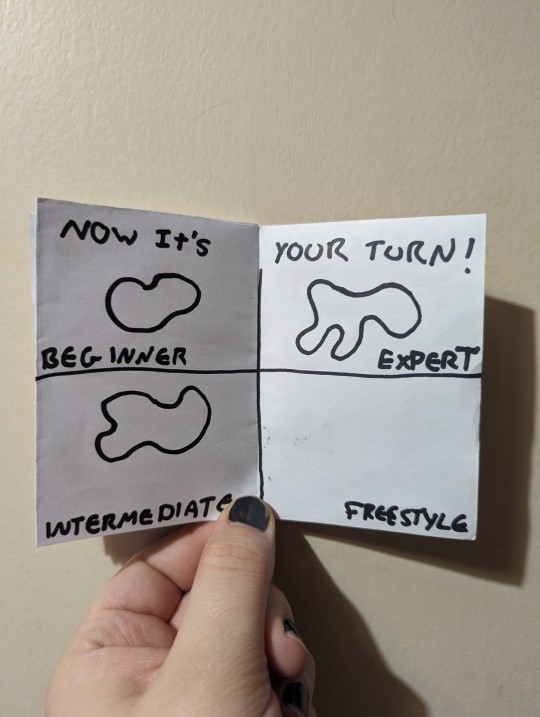 NOW It's
YOUR TURN!
BEGINNER
EXPERT
INTERMEDIATE
FREESTYLE